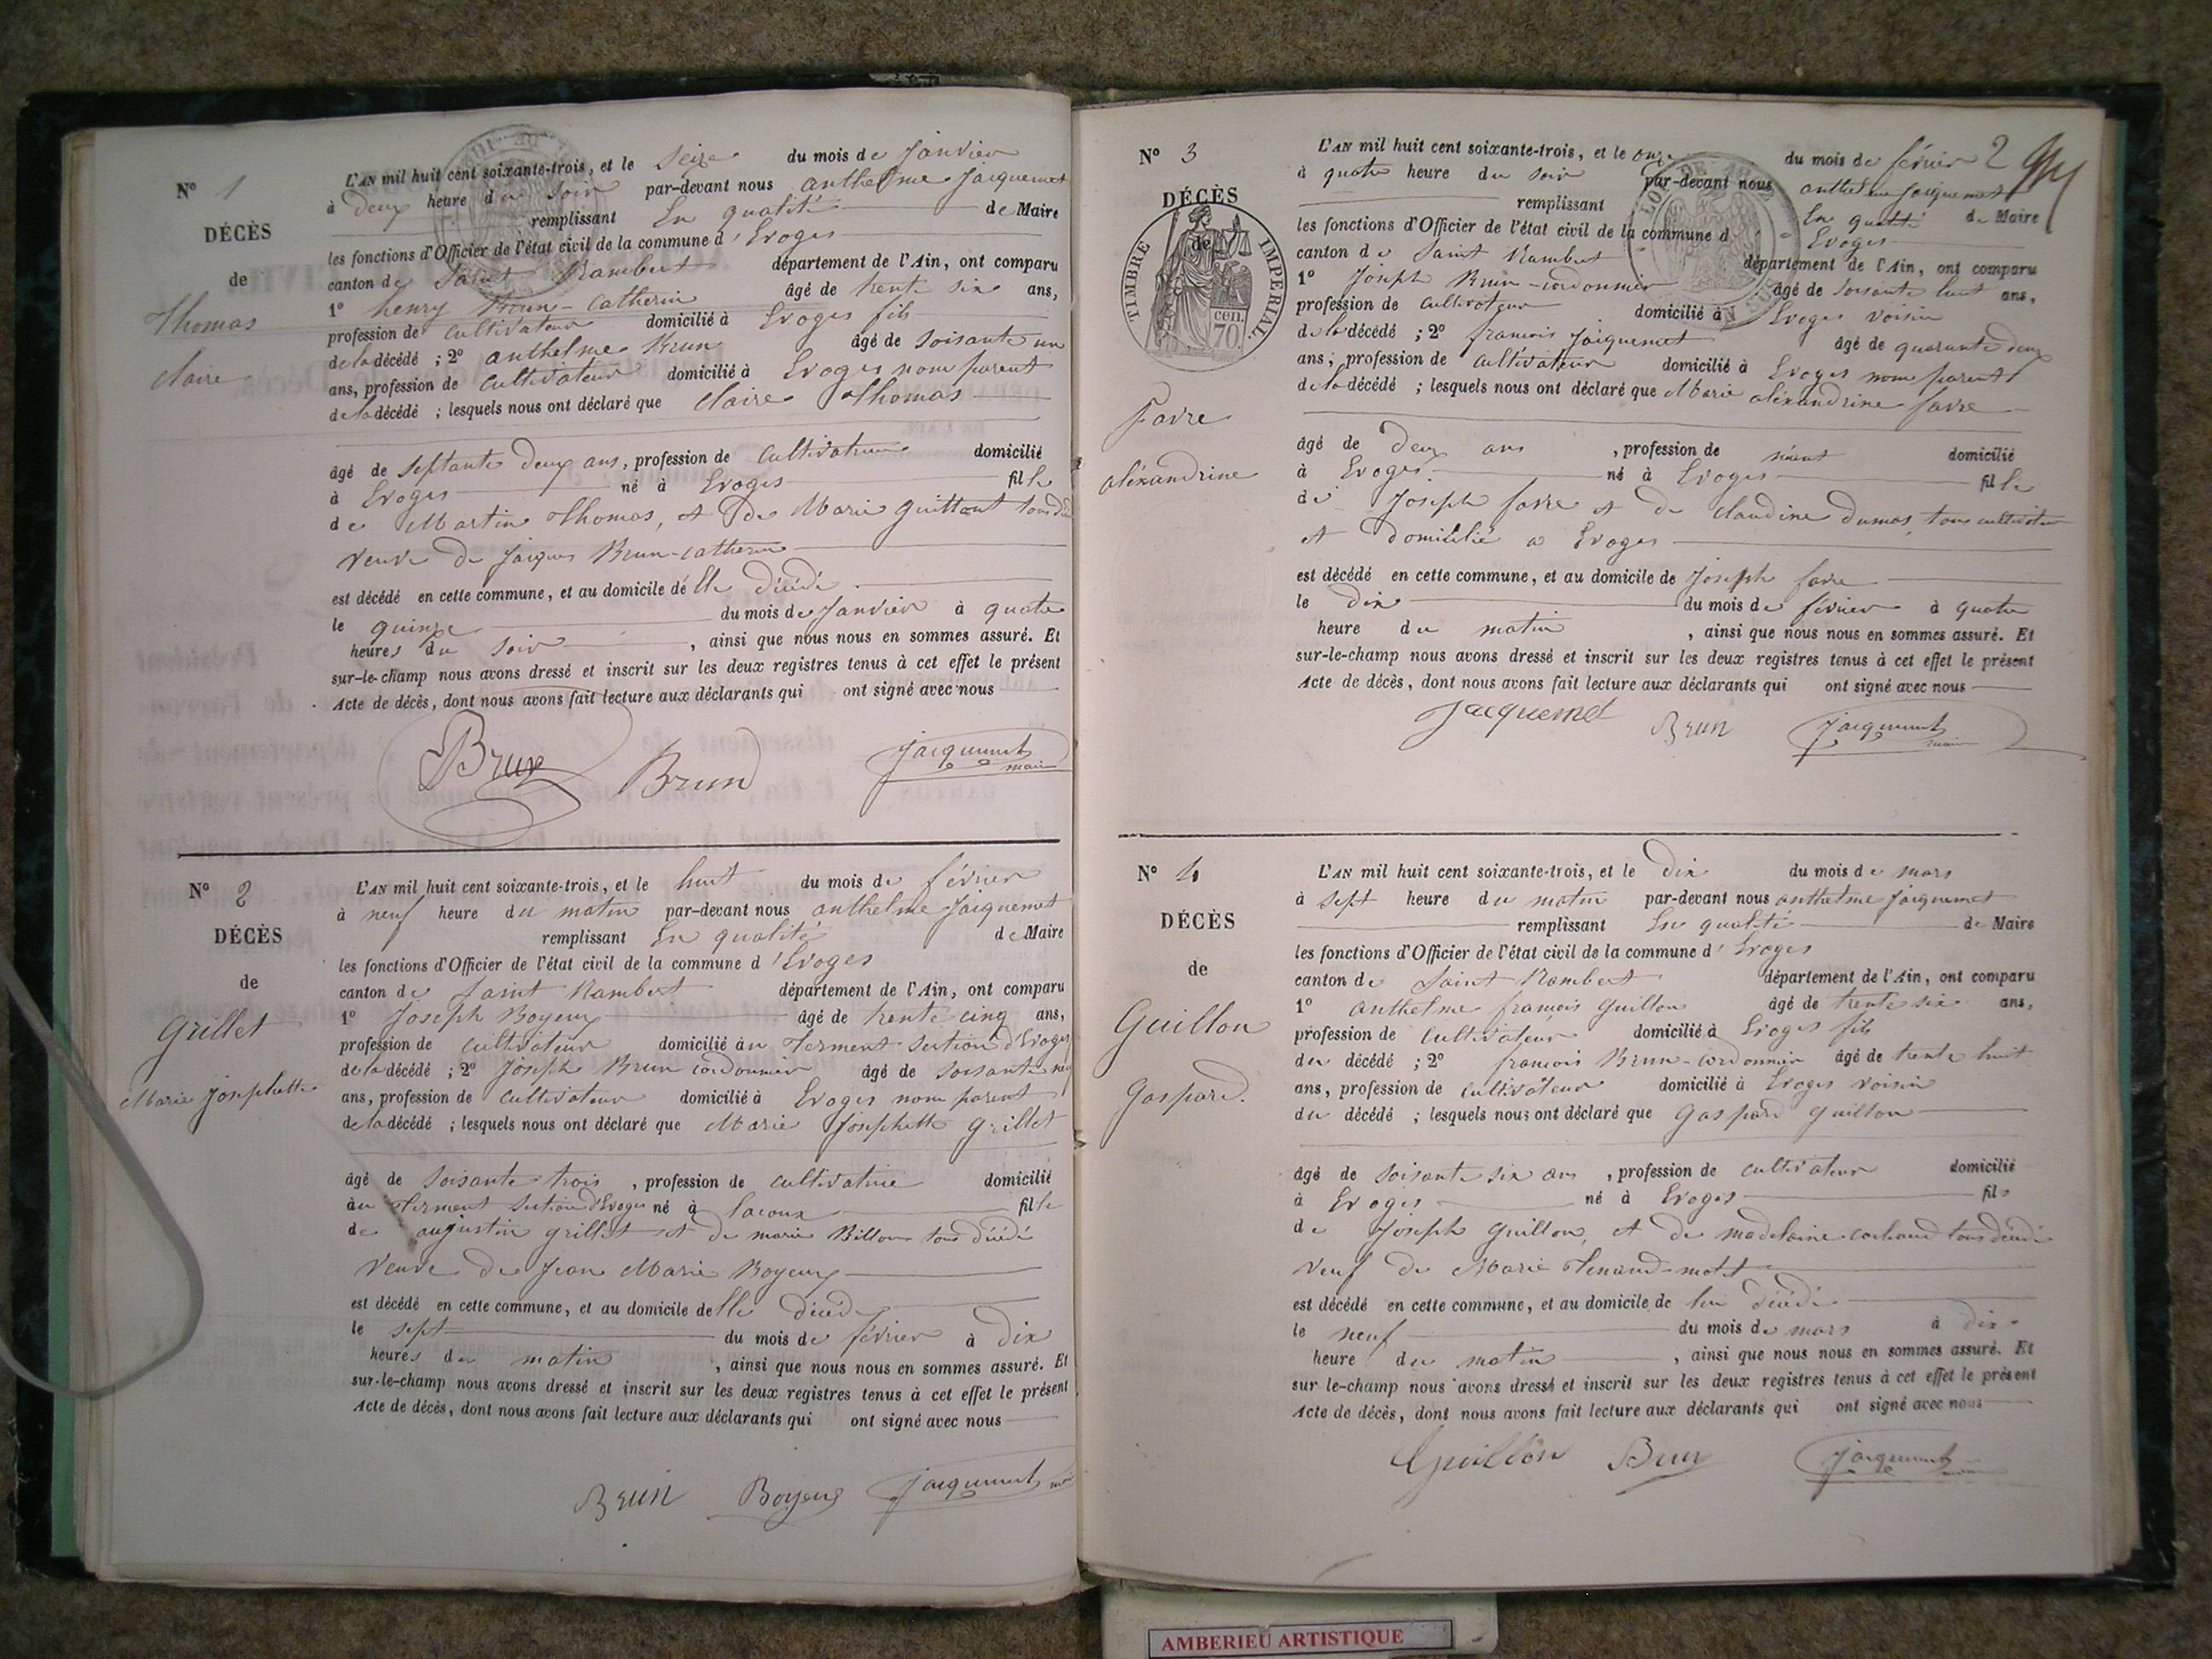 N° 1
DÉCÈS
de
Thomas
Claire
L'AN mil huit cent soixante-trois, et le Seize du mois de Janvier
à deux heure du soir par-devant nous anthelme Jacquemet
remplissant En qualité de Maire
les fonctions d'Officier de l'état civil de la commune d'Evoges
canton de Saint Rambert département de l'Ain, ont comparu
1° henry Brun-Catherin âgé de trente six ans,
profession de cultivateur domicilié à Evoges fils
de la décédé ; 2° anthelme Brun âgé de soisante un
ans, profession de cultivateur domicilié à Evoges nom parent
de la décédé ; lesquels nous ont déclaré que Claire Thomas
âgé de septante deux ans, profession de cultivatrice domicilié
à Evoges né à Evoges fille
de Martin Thomas, et de Marie Guittant tous
veuve de Jacques Brun-catherin
est décédé en cette commune, et au domicile de lle décédé
le quinze du mois de Janvier à quatre
heures du soir, ainsi que nous nous en sommes assuré. Et
sur-le-champ nous avons dressé et inscrit sur les deux registres tenus à cet effet le présent
Acte de décès, dont nous avons fait lecture aux déclarants qui ont signé avec nous
Brun Brun Jacquemet maire
N° 2
DÉCÈS
de
Grillet
Marie Josephette
L'AN mil huit cent soixante-trois, et le huit du mois de février
à neuf heure du matin par-devant nous anthelme Jacquemet
remplissant En qualité de Maire
les fonctions d'Officier de l'état civil de la commune d'Evoges
canton de Saint Rambert département de l'Ain, ont comparu
1° Joseph Boyeux âgé de trente cinq ans,
profession de cultivateur domicilié au Terment section d'Evoges
de la décédé ; 2° Joseph Brun cordonnier âgé de soisante
ans, profession de cultivateur domicilié à Evoges nom parent
de la décédé ; lesquels nous ont déclaré que Marie Josephette Grillet
âgé de soisante trois, profession de cultivatrice domicilié
au Terment section d'Evoges né à lacoux fille
de augustin grillet et de marie Billon tous décédé
veuve de Jean Marie Boyeux
est décédé en cette commune, et au domicile de lle décédé
le sept du mois de février à dix
heures du matin, ainsi que nous nous en sommes assuré. Et
sur-le-champ nous avons dressé et inscrit sur les deux registres tenus à cet effet le présent
Acte de décès, dont nous avons fait lecture aux déclarants qui ont signé avec nous
Brun Boyeux Jacquemet
N° 3
DÉCÈS
de
TIMBRE IMPERIAL
70 cen.
Favre
aléxandrine
L'AN mil huit cent soixante-trois, et le onze du mois de février 2
à quatre heure du soir par-devant nous anthelme Jacquemet
remplissant En qualité de Maire
les fonctions d'Officier de l'état civil de la commune d'Evoges
canton de Saint Rambert département de l'Ain, ont comparu
1° Joseph Brun-cordonnier âgé de soisante huit ans,
profession de cultivateur domicilié à Evoges voisin
de la décédé ; 2° francois Jacquemet âgé de quarante deux
ans, profession de cultivateur domicilié à Evoges nom parent
de la décédé ; lesquels nous ont déclaré que Marie aléxandrine favre
âgé de deux ans, profession de néant domicilié
à Evoges né à Evoges fille
de Joseph favre et de Claudine Dumas, tous cultivateur
et domicilié a Evoges
est décédé en cette commune, et au domicile de Joseph favre
le dix du mois de février à quatre
heure du matin, ainsi que nous nous en sommes assuré. Et
sur-le-champ nous avons dressé et inscrit sur les deux registres tenus à cet effet le présent
Acte de décès, dont nous avons fait lecture aux déclarants qui ont signé avec nous
Jacquemet Brun Jacquemet maire
N° 4
DÉCÈS
de
Guillon
Gaspard.
L'AN mil huit cent soixante-trois, et le dix du mois de mars
à sept heure du matin par-devant nous anthelme Jacquemet
remplissant En qualité de Maire
les fonctions d'Officier de l'état civil de la commune d'Evoges
canton de Saint Rambert département de l'Ain, ont comparu
1° anthelme francois Guillon âgé de trente six ans,
profession de cultivateur domicilié à Evoges fils
du décédé ; 2° francois Brun-cordonnier âgé de trente huit
ans, profession de cultivateur domicilié à Evoges voisin
du décédé ; lesquels nous ont déclaré que Gaspard Guillon
âgé de soisante six ans, profession de cultivateur domicilié
à Evoges né à Evoges fils
de Joseph Guillon, et de madelaine tous décédé
veuf de Marie Tenand-motet
est décédé en cette commune, et au domicile de lui décédé
le neuf du mois de mars à dix
heure du matin, ainsi que nous nous en sommes assuré. Et
sur le-champ nous avons dressé et inscrit sur les deux registres tenus à cet effet le présent
Acte de décès, dont nous avons fait lecture aux déclarants qui ont signé avec nous
Guillon Brun Jacquemet
AMBERIEU ARTISTIQUE